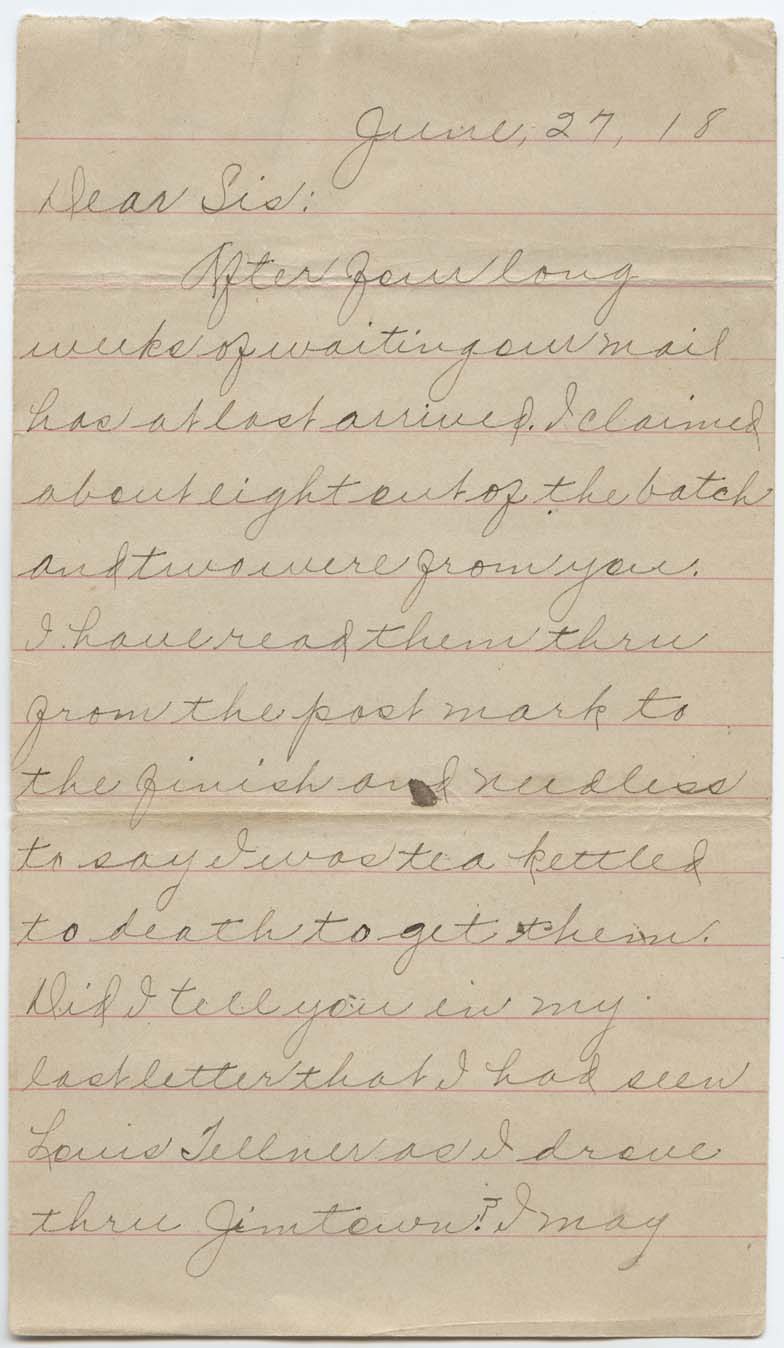 June, 27, 18
Dear Sis:
After four long
weeks of waiting our mail
has at last arrived. I claimed
about eight out of the batch
and two were from you.
I have read them thru
from the post mark to
the finish and needless
to say I was tea kettled
to death to get them.
Did I tell you in my
last letter that I had seen
Louis Tellner as I drove
thru Jimtown? I may